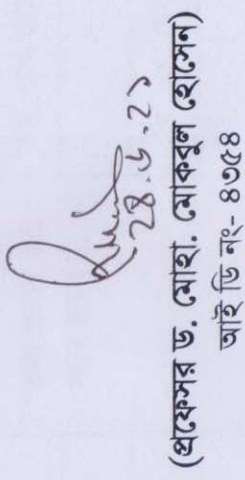 ২৪.৬.২১
(প্রফেসর ড. মোহা. মোকবুল হোসেন)
আই ডি নং- ৪৩৫৪